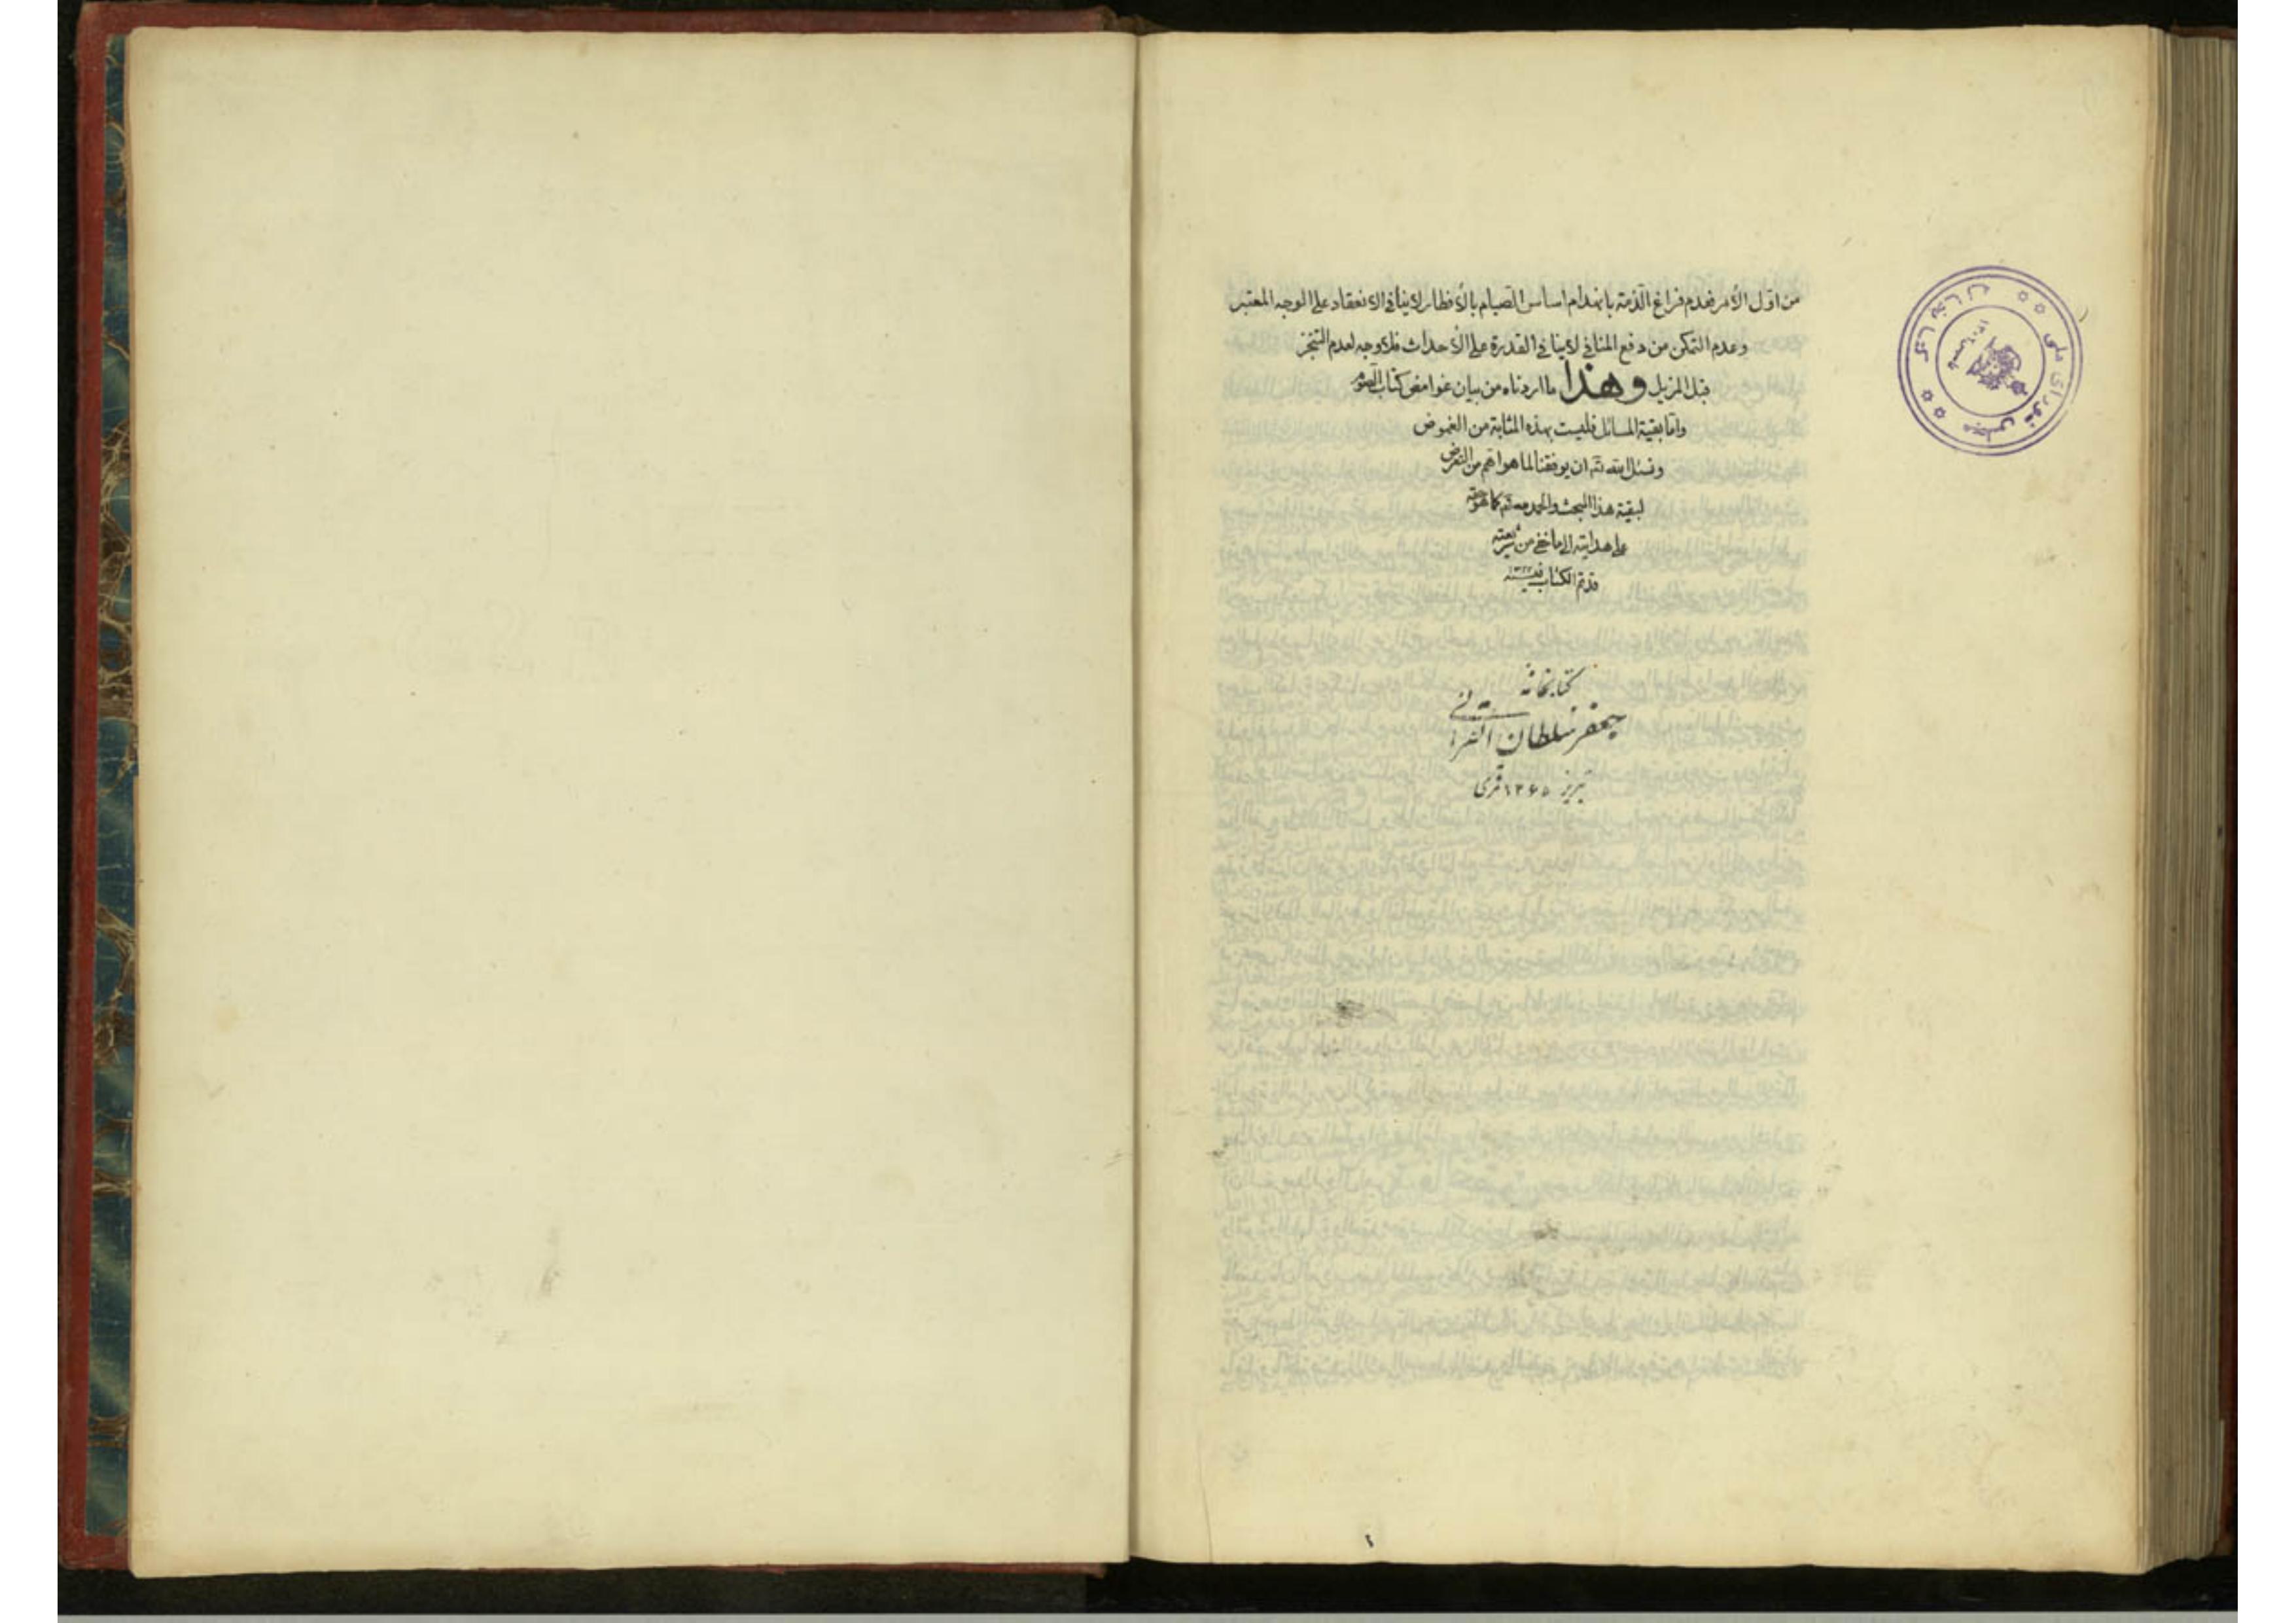 من اول الأمر فعدم فراغ الذمة بانهدام اساس الصيام بالأفطار لا ينافي الانعقاد على الوجه المعتبر
وعدم التمكن من دفع المنافي لا ينافي القدرة على الأحداث فلا وجه لعدم التنجز
قبل المزيل وهذا ما اردناه من بيان غوامض كتاب الصوم
واما بقية المسائل فليست بهذه المثابة من الغموض
ونسئل الله ته ان يوفقنا لما هو اهم من التعرض
لبقية هذا المبحث والحمد لله كما هو حقه
على هدايته الى ما خفي من شريعته
قد تم الكتاب في سنه ١٣٢٢
كتابخانه
جعفر سلطان القرائی
تبریز ۱۳۶۵ قمری
مجلس شورای ملی
کتابخانه